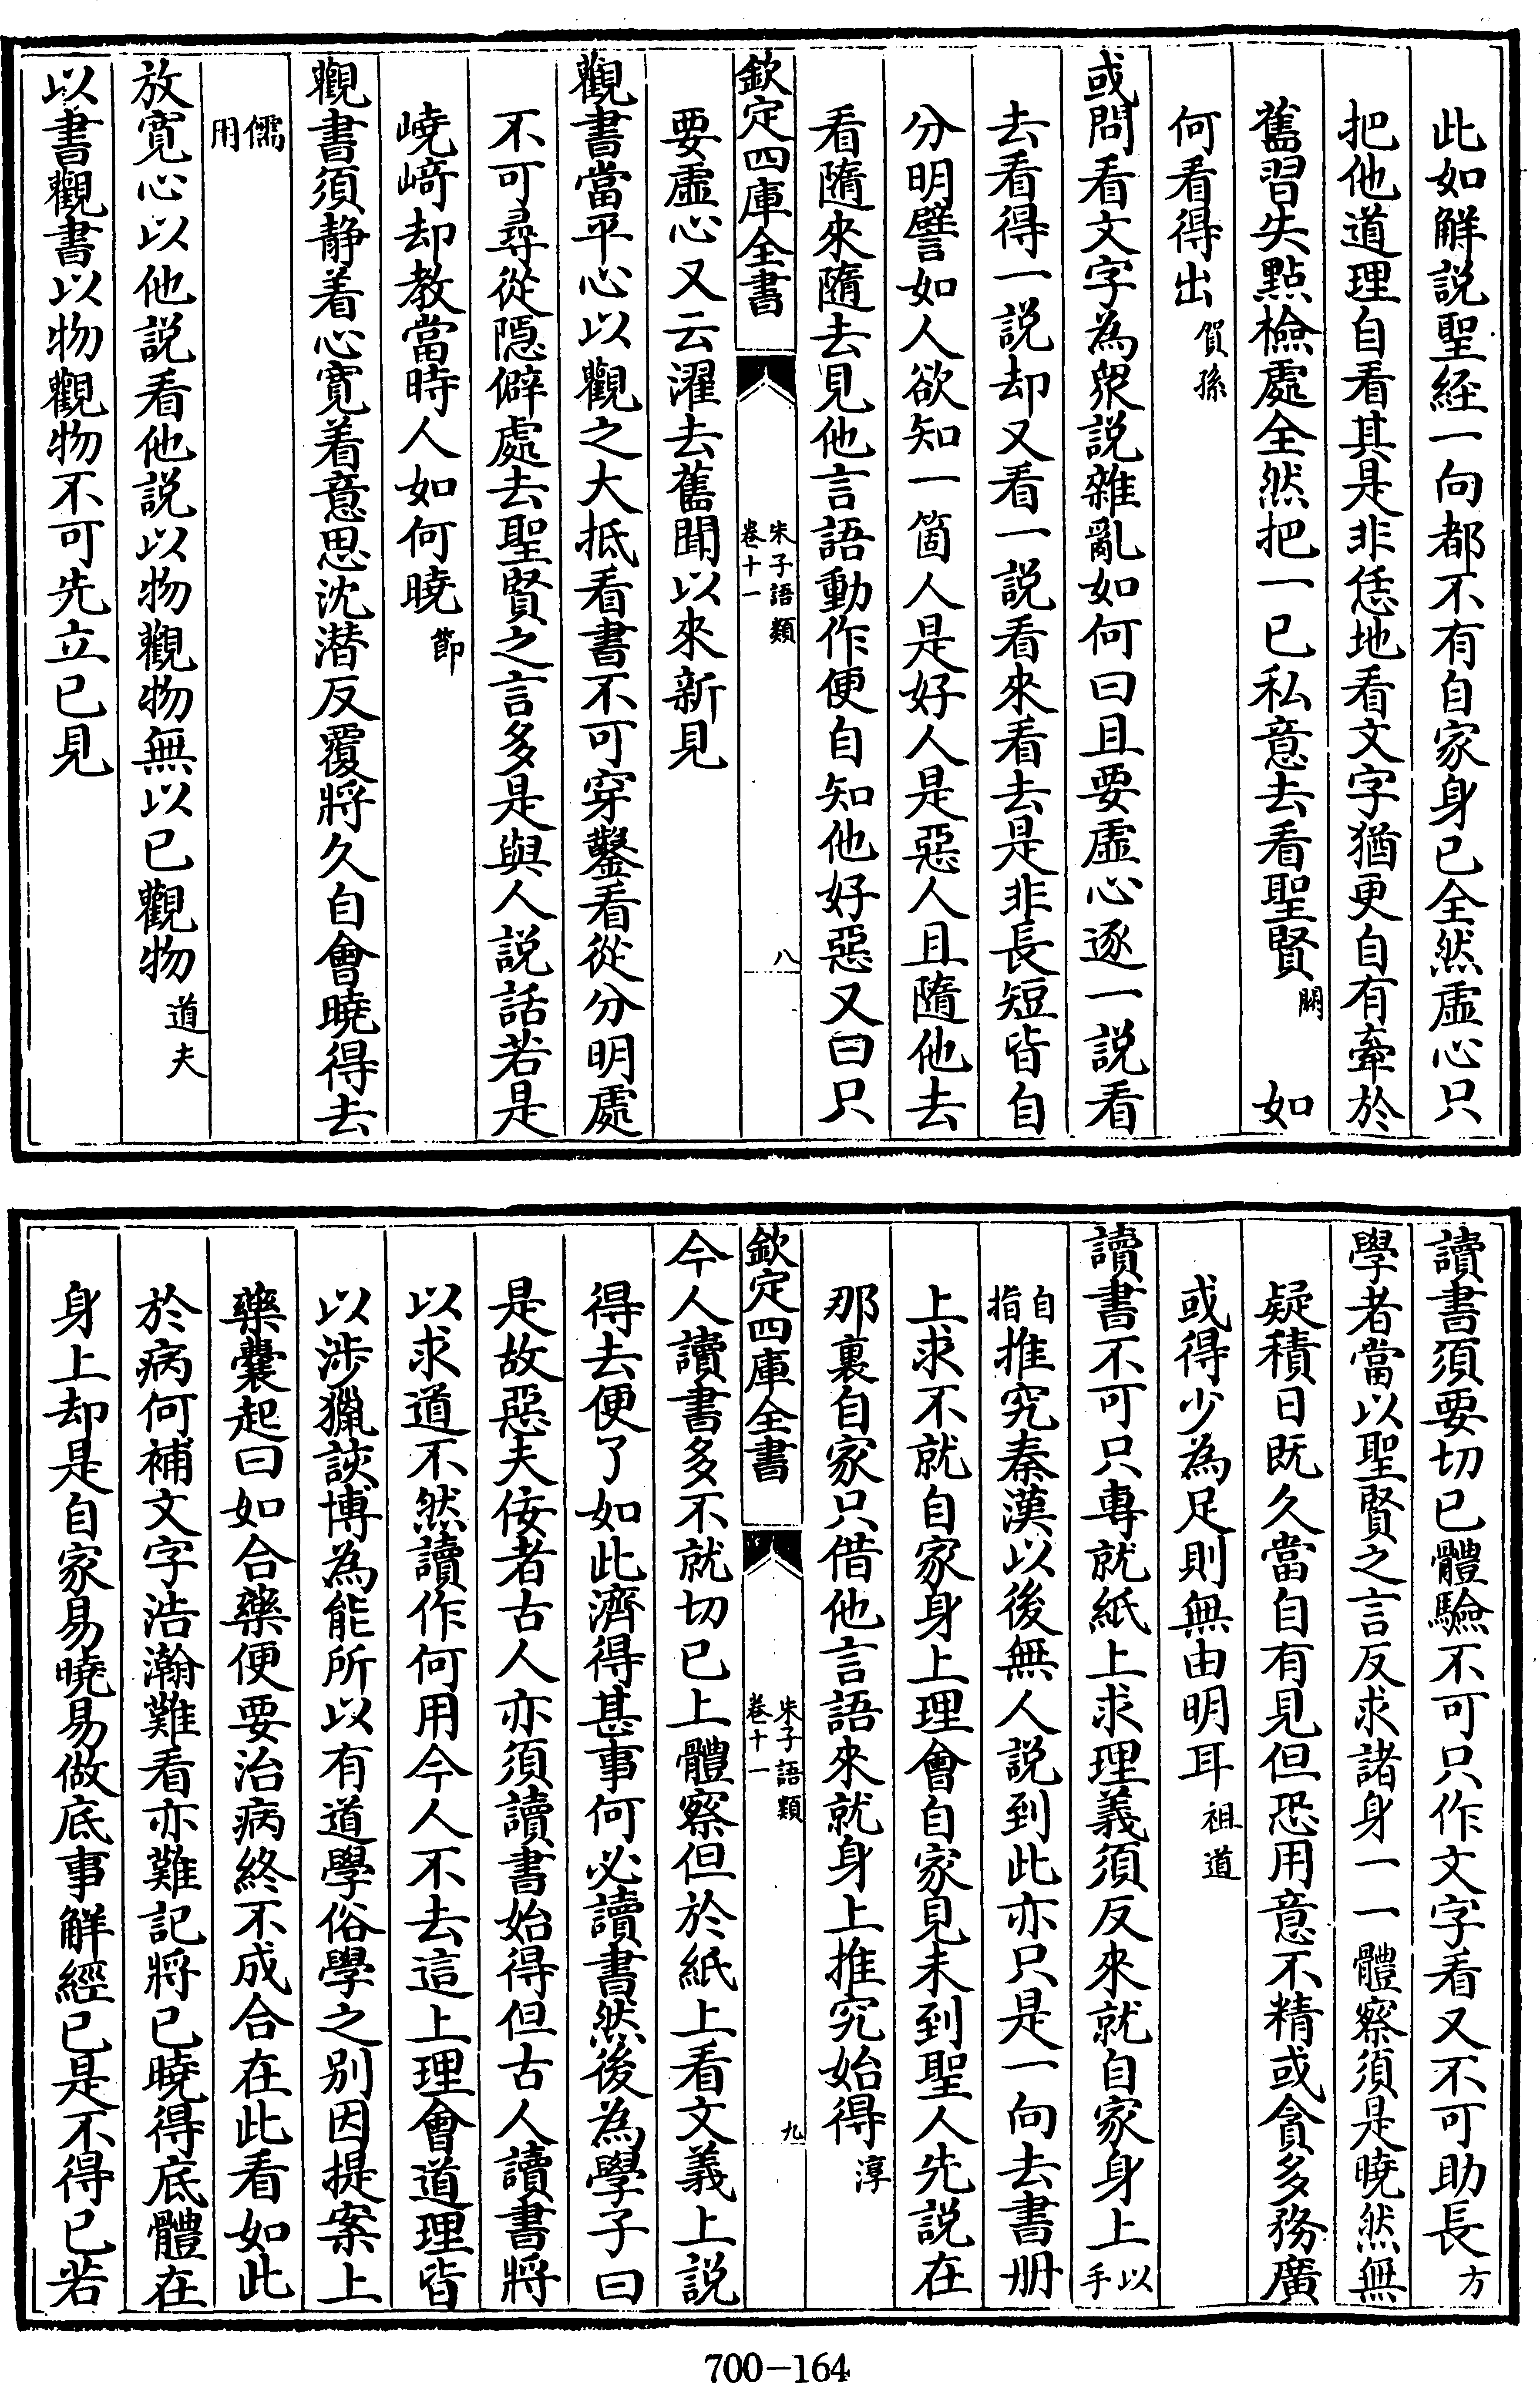 此如解説聖經一向都不有自家身已全然虛心只
把他道理自看其是非恁地看文字猶更自有牽於
舊習失點檢處全然把一已私意去看聖賢闕如
何看得出賀孫
或問看文字為衆説雜亂如何曰且要虛心逐一説看
去看得一説却又看一説看來看去是非長短皆自
分明譬如人欲知一箇人是好人是惡人且隨他去
看隨來隨去見他言語動作便自知他好惡又曰只
欽定四庫全書
朱子語類
卷十一
八
要虛心又云濯去舊聞以來新見
觀書當平心以觀之大抵看書不可穿鑿看從分明處
不可尋從隱僻處去聖賢之言多是與人説話若是
嶢崎却教當時人如何曉節
觀書須静着心寛着意思沈潜反覆將久自會曉得去
儒用
放寛心以他説看他説以物觀物無以已觀物道夫
以書觀書以物觀物不可先立已見
讀書須要切已體驗不可只作文字看又不可助長方
學者當以聖賢之言反求諸身一一體察須是曉然無
疑積日既久當自有見但恐用意不精或貪多務廣
或得少為足則無由明耳祖道
讀書不可只專就紙上求理義須反來就自家身上以手
自指推究秦漢以後無人説到此亦只是一向去書册
上求不就自家身上理會自家見未到聖人先説在
那裏自家只借他言語來就身上推究始得淳
欽定四庫全書
朱子語類
卷十一
九
今人讀書多不就切已上體察但於紙上看文義上説
得去便了如此濟得甚事何必讀書然後為學子曰
是故惡夫佞者古人亦須讀書始得但古人讀書將
以求道不然讀作何用今人不去這上理會道理皆
以涉獵該博為能所以有道學俗學之别因提案上
藥囊起曰如合藥便要治病終不成合在此看如此
於病何補文字浩瀚難看亦難記將已曉得底體在
身上却是自家易曉易做底事解經已是不得已若
700-164